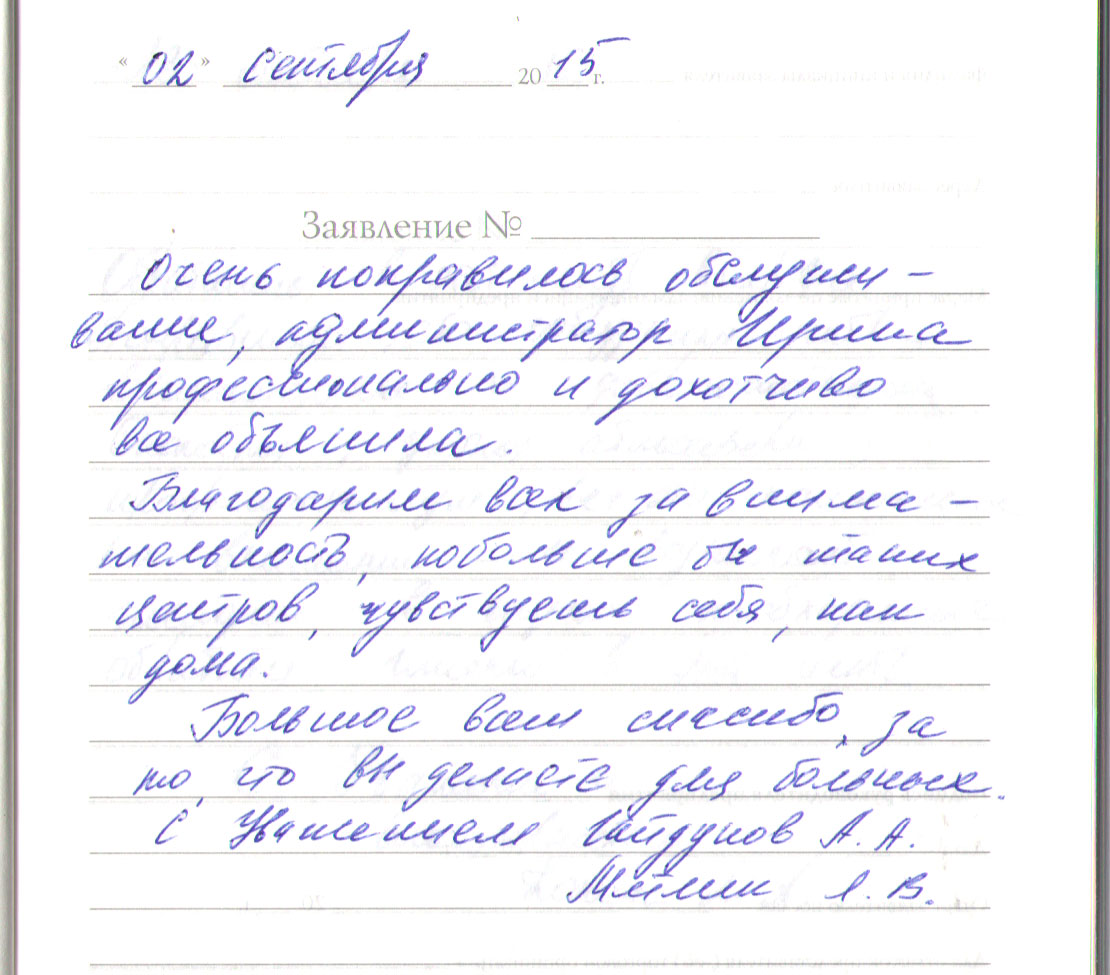 « 02 » Сентября 20 15 г.
Заявление №
Очень понравилось обслужи-
вание, администратор Ирина
профессионально и дохотчиво
все объяснила.
Благодарим всех за внима-
тельность, побольше бы таких
центров, чувствуешь себя, как
дома.
Большое вам спасибо, за
то, что вы делаете для больных.
С Уважением А. А.
Л. В.